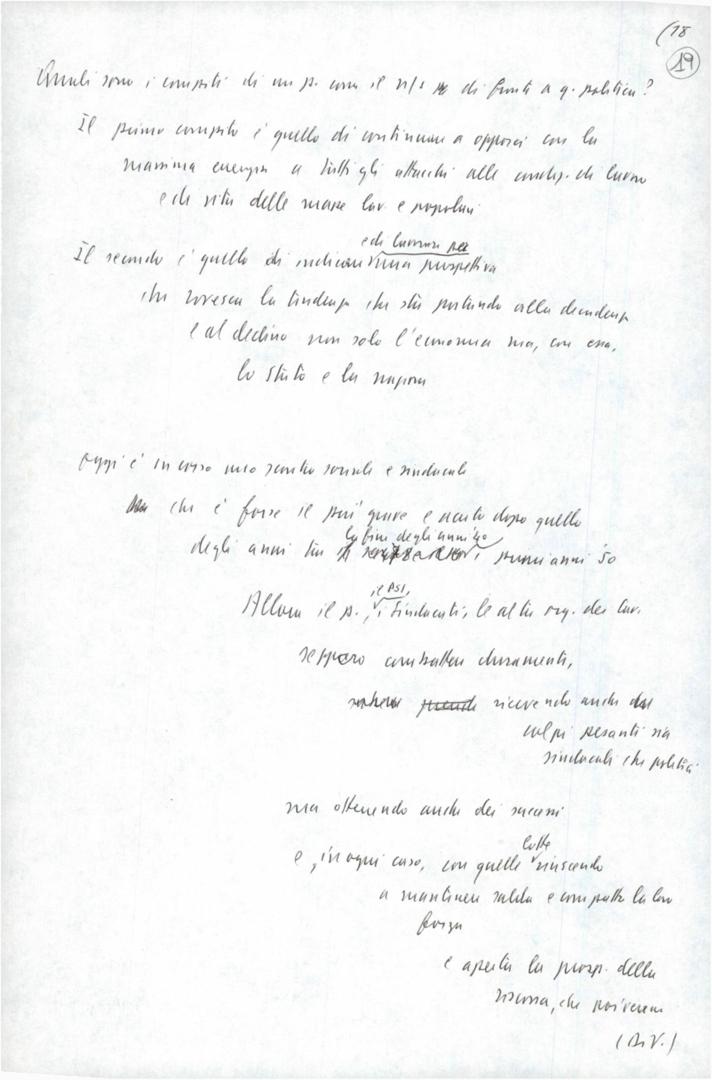 (18
19
Quali sono i compiti di un p. come il n/s di fronte a q. politica?
Il primo compito è quello di continuare a opporsi con la
massima energia a tutti gli attacchi alle condiz. di lavoro
e di vita delle masse lav. e popolari
e di lavorare per
Il secondo è quello di indicare una prospettiva
che rovesci la tendenza che sta portando alla decadenza
e al declino non solo l'economia ma, con essa,
lo Stato e la nazione
Oggi è in corso uno scontro sociale e sindacale
che è forse il più grave e acuto dopo quello
la fine degli anni '40
degli anni tra e i primi anni '50
il PSI,
Allora il p., i sindacati, le altre org. dei lav.
seppero combattere duramente,
ricevendo anche dei
colpi pesanti sia
sindacali che politici
ma ottenendo anche dei successi
lotte
e, in ogni caso, con quelle riuscendo
a mantenere salda e compatta la loro
forza
e aperta la prosp. della
riscossa, che poi venne
(Di V.)